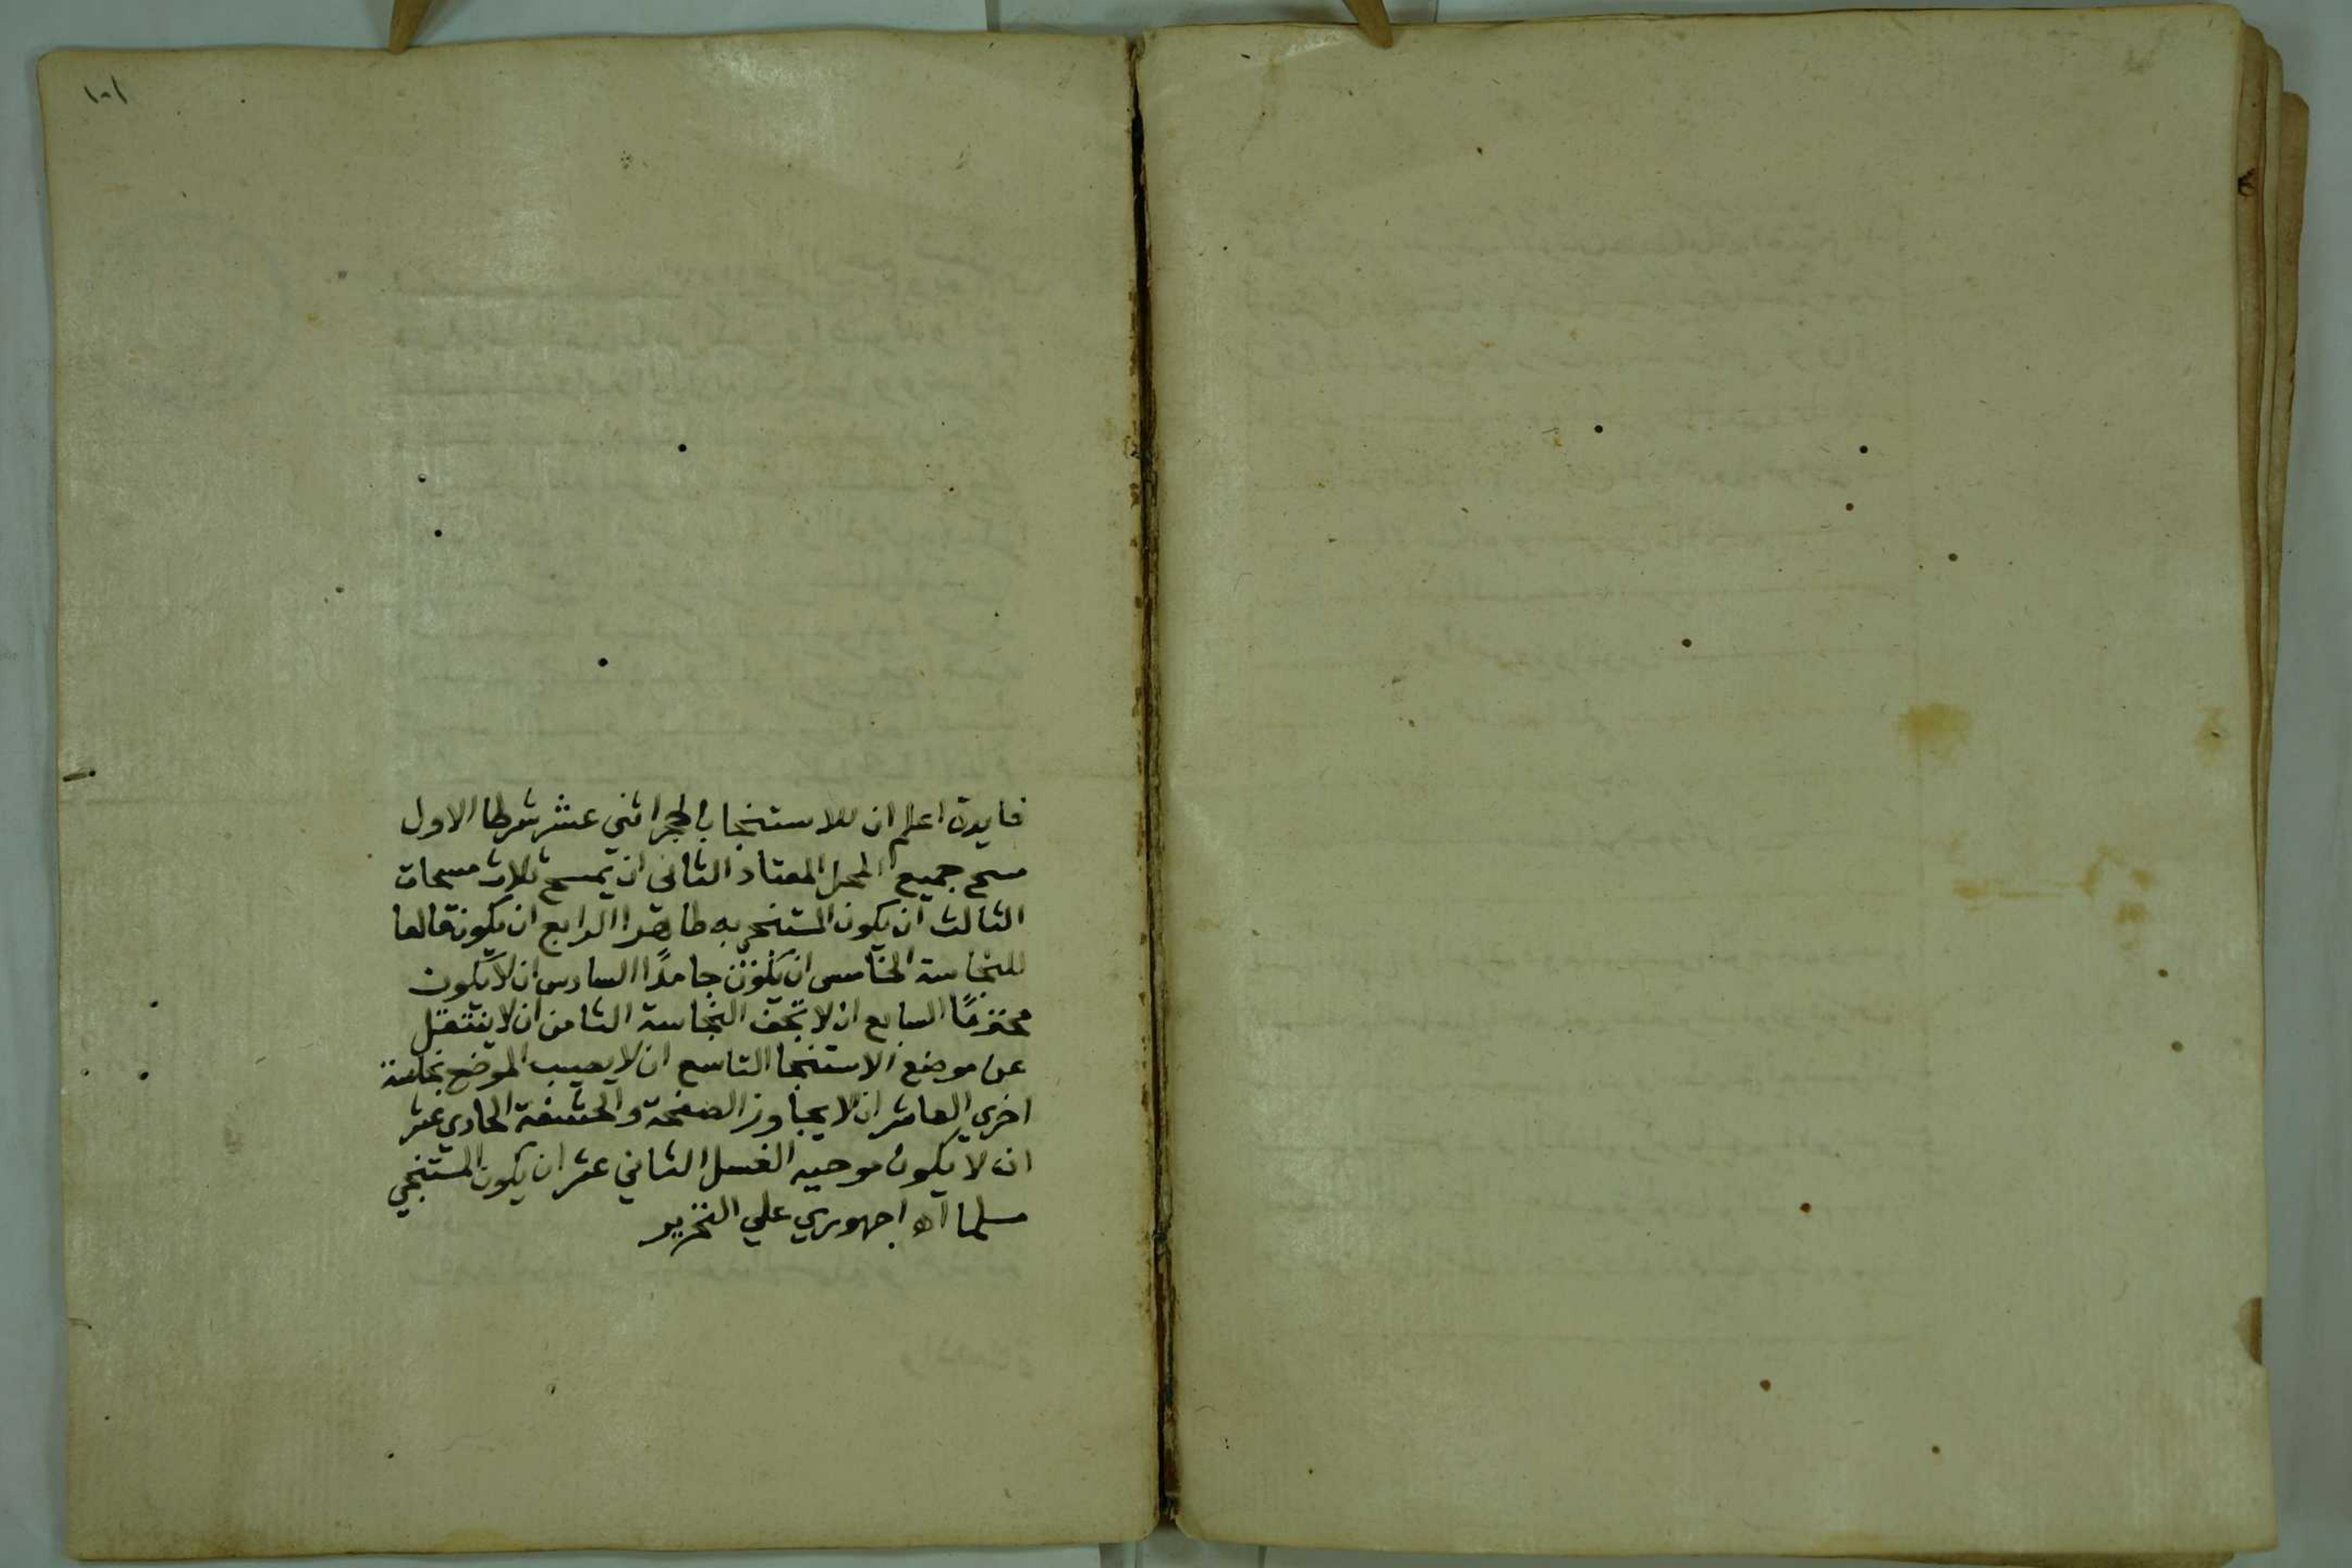 ١٠١
فايدة اعلم ان للاستنجا بالحجر اثني عشر شرطا الاول
مسح جميع المحل المعتاد الثاني ان يمسح ثلاث مسحات
الثالث ان يكون المستنجي به طاهرا الرابع ان يكون قالعا
للنجاسة الخامس ان يكون جامدًا السادس ان لا يكون
محترمًا السابع ان لا تجف النجاسة الثامن ان لا ينتقل
عن موضع الاستنجا التاسع ان لا يصيب الموضع نجاسة
اخري العاشر ان لا يجاوز الصفحة والحشفة الحادي عشر
ان لا يكون موجبه الغسل الثاني عشر ان يكون المستنجي
مسلما اه اجهوري علي التحرير